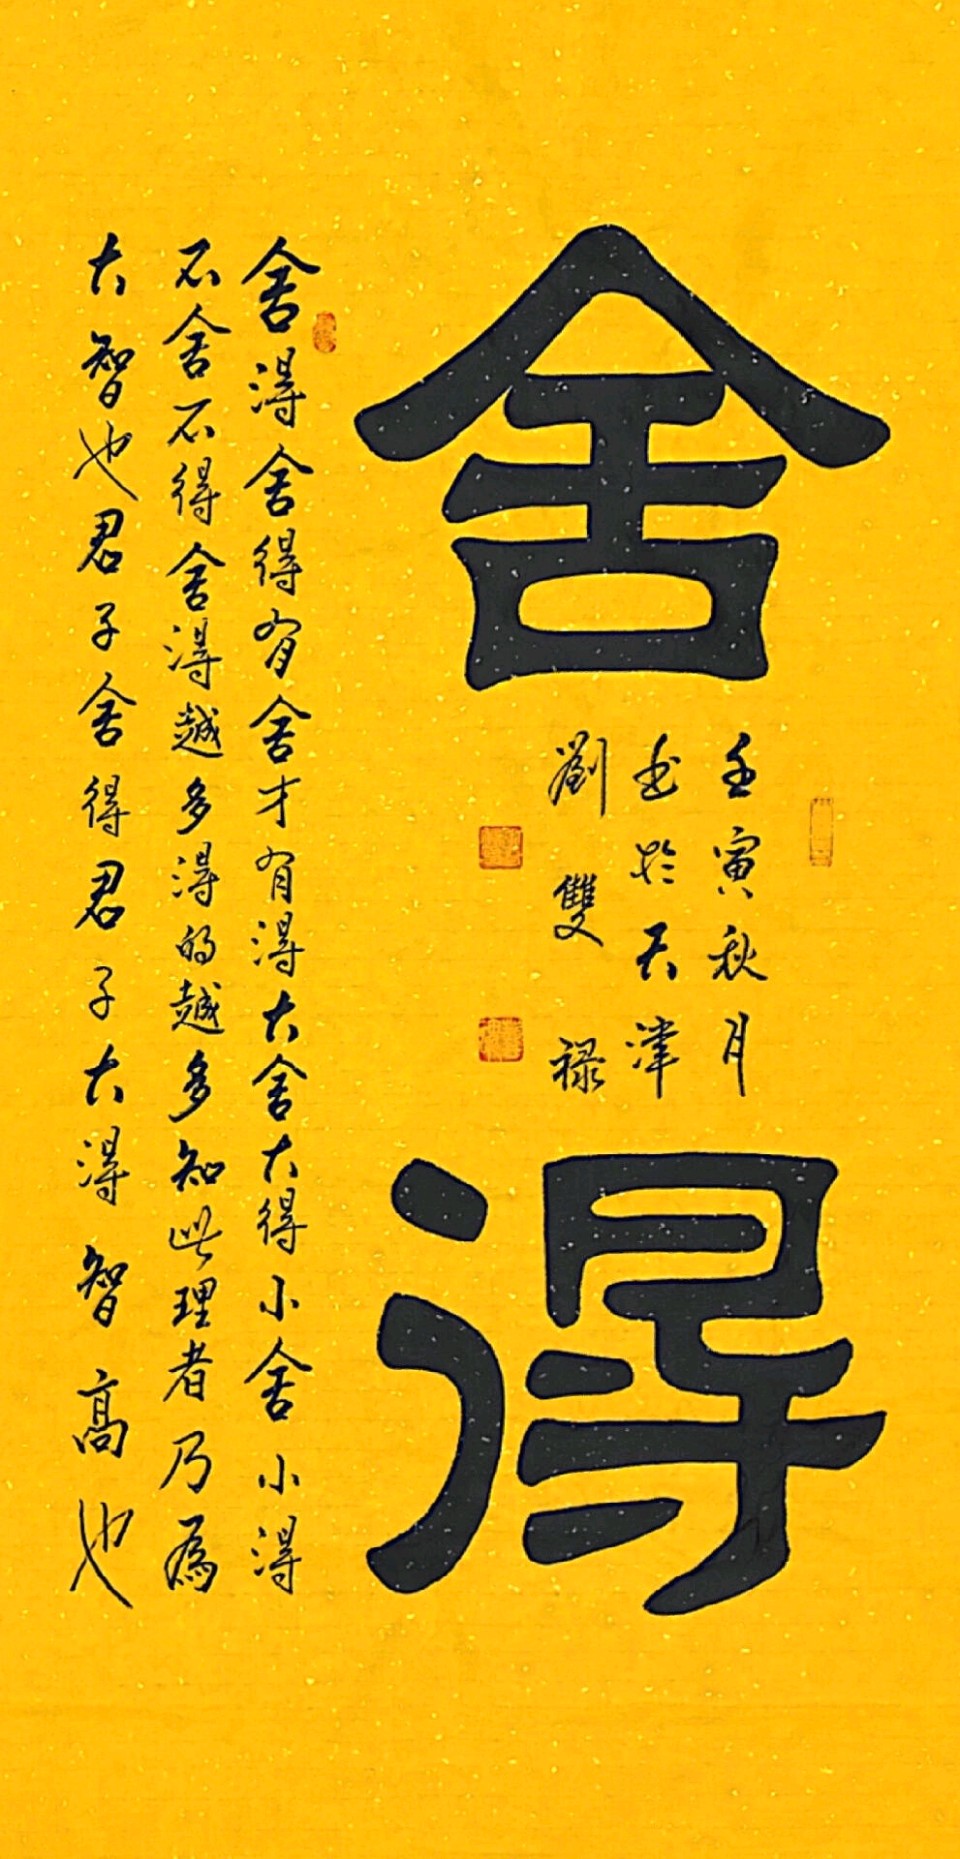 舍得
壬寅秋月
书於天津
劉雙禄
舍得舍得有舍才有得大舍大得小舍小得
不舍不得舍得越多得的越多知此理者乃為
大智也君子舍得君子大得智高也